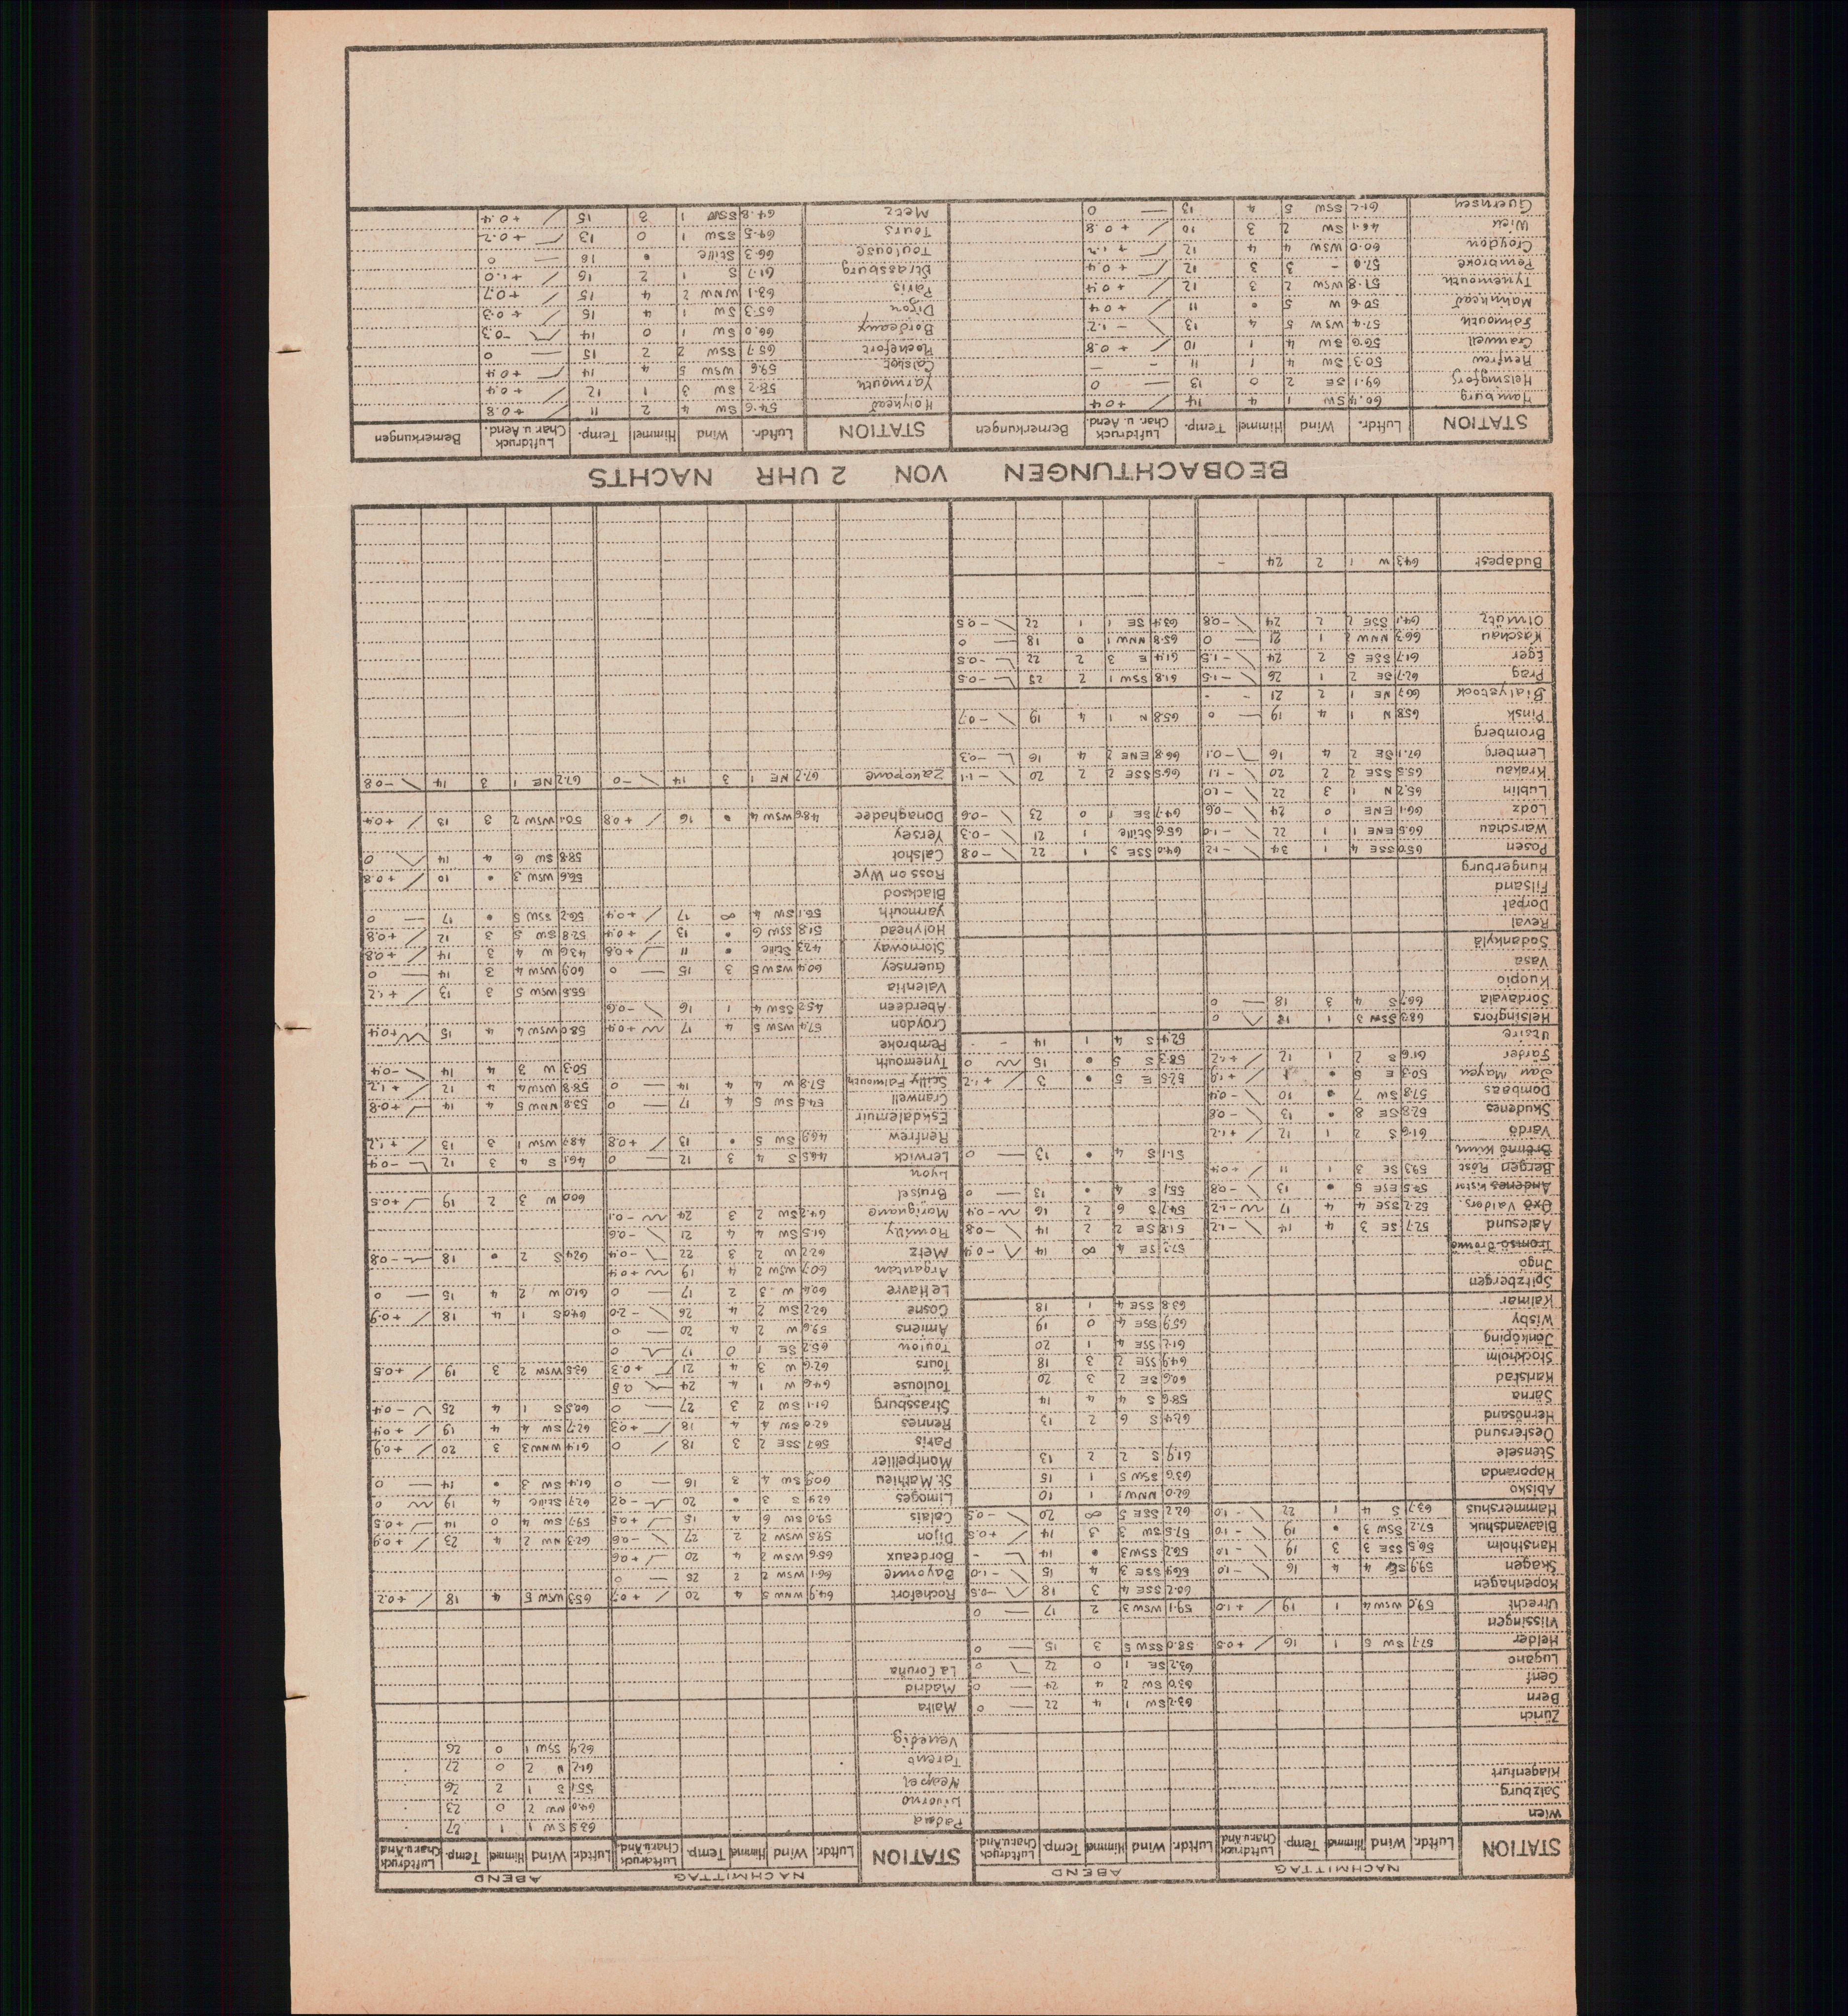 NACHMITTAG ABEND NACHMITTAG ABEND
STATION Luftdr. Wind Himmel Temp. Luftdruck Char.u.Änd. Luftdr. Wind Himmel Temp. Luftdruck Char.u.Änd. STATION Luftdr. Wind Himmel Temp. Luftdruck Char.u.Änd. Luftdr. Wind Himmel Temp. Luftdruck Char.u.Änd.
Wien
Salzburg
Klagenfurt
Zürich
Bern 63.2 SW 1 4 22 — 0
Genf 63.0 SW 2 4 24 — 0
Lugano 63.2 SE 1 0 22 0
Helder 57.7 SW 5 1 16 +0.5 58.0 SSW 5 3 15 — 0
Vlissingen
Utrecht 59.0 WSW 4 1 19 +1.0 59.1 WSW 3 2 17 — 0
Kopenhagen 60.2 SSE 4 3 18 -0.5
Skagen 59.9 SE 4 4 16 -1.0 SSE 3 4 15 -1.0
Hanstholm 56.5 SSE 3 3 19 -1.0 56.2 SSW 3 • 14 -
Blaavandshuk 57.2 SSW 3 • 19 -1.0 57.5 SW 3 3 14 +0.5
Hammershus 63.7 S 4 1 22 -1.0 62.2 SSE 5 ∞ 20 -0.5
Abisko 62.0 NNW 1 1 10
Haparanda 63.6 SSW 5 1 15
Stensele 61.9 S 2 2 13
Oestersund
Hernösand 62.4 S 6 2 13
Särna 58.6 S 4 4 14
Karlstad 60.6 SE 2 3 20
Stockholm 64.9 SSE 2 3 18
Jönköping 61.2 SSE 4 1 20
Wisby 65.9 SSE 4 0 19
Kalmar 63.8 SSE 4 1 18
Spitzbergen
Ingö
Tromsö Brönnö 57.2 SE 4 ∞ 14 -0.4
Aalesund 52.7 SE 3 4 14 -1.2 51.8 SE 2 2 14 -0.8
Oxö Valders. 52.2 SSE 4 4 17 -1.2 54.7 S 6 2 16 -0.4
Andenes Kistr. 54.5 ESE 5 • 13 -0.8 55.1 S 4 • 13 — 0
Bergen Röst 59.3 SE 3 1 11 +0.4
Brönnö Kinn 51.1 S 4 • 13 — 0
Vardö 61.6 S 2 1 12 +1.2
Skudenes 52.8 SE 8 • 13 -0.8
Dombaas 57.8 SW 7 • 10 -0.4
Jan Mayen 50.3 E 5 • +1.9 52.5 E 5 • 3 +1.2
Färder 61.6 S 2 1 12 +1.2 58.3 S 5 • 15 0
Utsire 52.4 S 4 1 14 - -
Helsingfors 68.3 SSW 3 1 18 0
Sordavala 66.7 S 4 3 18 — 0
Kuopio
Vasa
Sodankylä
Reval
Dorpat
Filsand
Hungerburg
Posen 65.0 SSE 4 1 34 -1.2 64.0 SSE 3 1 22 -0.8
Warschau 66.5 ENE 1 1 22 -1.0 65.6 Stille 1 21 -0.3
Lodz 66.1 ENE 0 24 -0.6 64.7 SE 1 0 23 -0.6
Lublin 65.2 N 1 3 22 -1.0
Krakau 65.5 SSE 2 2 20 -1.1 66.5 SSE 2 2 20 -1.1
Lemberg 67.1 SE 2 4 16 -0.1 66.8 ENE 2 4 16 -0.3
Bromberg
Pinsk 65.8 N 1 4 19 — 0 65.8 N 1 4 19 -0.7
Bialystock 66.7 NE 1 2 21 - -
Prag 62.7 SE 2 1 26 -1.5 61.8 SSW 1 2 25 -0.5
Eger 61.7 SSE 5 2 24 -1.5 61.4 E 3 2 22 -0.5
Kaschau 66.3 NNW 2 1 21 — 0 65.8 NNW 1 0 18 — 0
Olmütz 64.1 SSE 2 2 24 -0.8 63.4 SE 1 1 22 -0.5
Budapest 64.3 W 1 2 24 -
Padua 63.5 SW 1 1 27
Livorno 64.0 NW 2 0 23
Neapel 55.1 S 1 2 26
Tarent 61.2 N 2 0 27
Venedig 62.9 SSW 1 0 26
Malta
Madrid
La Coruña
Rochefort 64.9 WNW 5 4 20 +0.7 65.3 WSW 5 4 18 +0.2
Bayonne 66.1 WSW 2 2 25 — 0
Bordeaux 65.6 WSW 2 4 20 +0.6
Dijon 59.5 WSW 2 2 27 -0.6 62.3 NW 2 4 23 +0.9
Calais 59.0 SW 6 4 15 +0.5 59.7 SW 4 0 14 +0.5
Limoges 62.4 S 3 • 20 -0.2 62.7 Stille 4 19 0
St. Mathieu 60.9 SW 4 3 16 — 0 61.4 SW 3 • 14 — 0
Montpellier
Paris 56.7 SSE 2 3 18 0 61.4 WNW 3 3 20 +0.9
Rennes 62.0 SW 4 4 18 +0.3 62.7 SW 4 4 19 +0.4
Strassburg 61.1 SW 2 3 27 — 0 60.5 S 1 4 25 -0.4
Toulouse 64.6 W 1 4 24 0.5
Tours 62.6 W 3 4 21 +0.3 63.5 WSW 2 3 19 +0.5
Toulon 65.2 SE 1 0 17 0
Amiens 59.6 W 2 4 20 — 0
Cosne 62.2 SW 2 4 26 -2.0 64.0 S 1 4 18 +0.9
Le Havre 60.6 W 3 2 17 — 0 61.0 W 2 4 15 — 0
Argentan 60.7 WSW 2 4 19 +0.4
Metz 62.2 W 2 3 22 -0.4 62.4 S 2 • 18 -0.8
Romilly 61.5 SW 4 4 21 -0.6
Marignane 64.2 SW 2 3 24 -0.1
Brüssel 60.0 W 3 2 19 +0.5
Lyon
Lerwick 46.5 S 4 3 12 — 0 46.1 S 4 3 12 -0.4
Renfrew 46.9 SW 5 • 13 +0.8 48.7 WSW 1 3 13 +1.2
Eskdalemuir
Cranwell 54.5 SW 5 4 17 — 0 53.8 NNW 5 4 14 +0.8
Scilly Falmouth 57.8 W 4 4 14 — 0 58.8 WSW 4 4 12 +1.2
Tynemouth 50.3 W 3 4 14 -0.4
Pembroke
Croydon 57.4 WSW 5 4 17 +0.4 58.0 WSW 4 4 15 +0.4
Aberdeen 45.2 SSW 4 1 16 -0.6
Valentia 55.5 WSW 5 3 13 +1.2
Guernsey 60.4 WSW 5 3 15 — 0 60.9 WSW 4 3 14 — 0
Stornoway 42.3 Stille • 11 +0.8 43.6 W 4 3 14 +0.8
Holyhead 51.8 SSW 6 • 13 +0.4 52.8 SW 5 3 12 +0.8
Yarmouth 56.1 SW 4 ∞ 17 +0.4 56.2 SSW 5 • 17 — 0
Blacksod
Ross on Wye 56.6 WSW 3 • 10 +0.8
Calshot 58.8 SW 6 4 14 0
Yersey
Donaghadee 48.6 WSW 4 • 16 +0.8 50.1 WSW 2 3 13 +0.4
Zakopane 67.2 NE 1 3 14 -0 67.2 NE 1 3 14 -0.8
BEOBACHTUNGEN VON 2 UHR NACHTS
STATION Luftdr. Wind Himmel Temp. Luftdruck Char. u. Aend. Bemerkungen STATION Luftdr. Wind Himmel Temp. Luftdruck Char. u. Aend. Bemerkungen
Hamburg 60.4 SW 1 4 14 +0.4 Holyhead 54.6 SW 4 2 11 +0.8
Helsingfors 69.1 SE 2 0 13 — 0 Yarmouth 58.2 SW 3 1 12 +0.4
Renfrew 50.3 SW 4 1 11 - - Calshot 59.6 WSW 5 4 14 +0.4
Cranwell 56.6 SW 4 1 10 +0.8 Rochefort 65.7 SSW 2 2 15 — 0
Falmouth 57.4 WSW 5 4 13 -1.2 Bordeaux 66.0 SW 1 0 14 -0.3
Malinhead 50.6 W 5 • 11 +0.4 Dijon 65.3 SW 1 4 15 +0.3
Tynemouth 51.8 WSW 2 3 12 +0.4 Paris 63.1 WNW 2 4 15 +0.7
Pembroke 57.0 - 3 3 12 +0.4 Strassburg 61.7 S 1 2 16 +1.0
Croydon 60.0 WSW 4 4 12 +1.2 Toulouse 66.3 Stille • 16 — 0
Wick 46.1 SW 2 3 10 +0.8 Tours 64.5 SSW 1 0 13 +0.2
Guernsey 61.2 SSW 5 4 13 — 0 Metz 64.8 SSW 1 3 15 +0.4